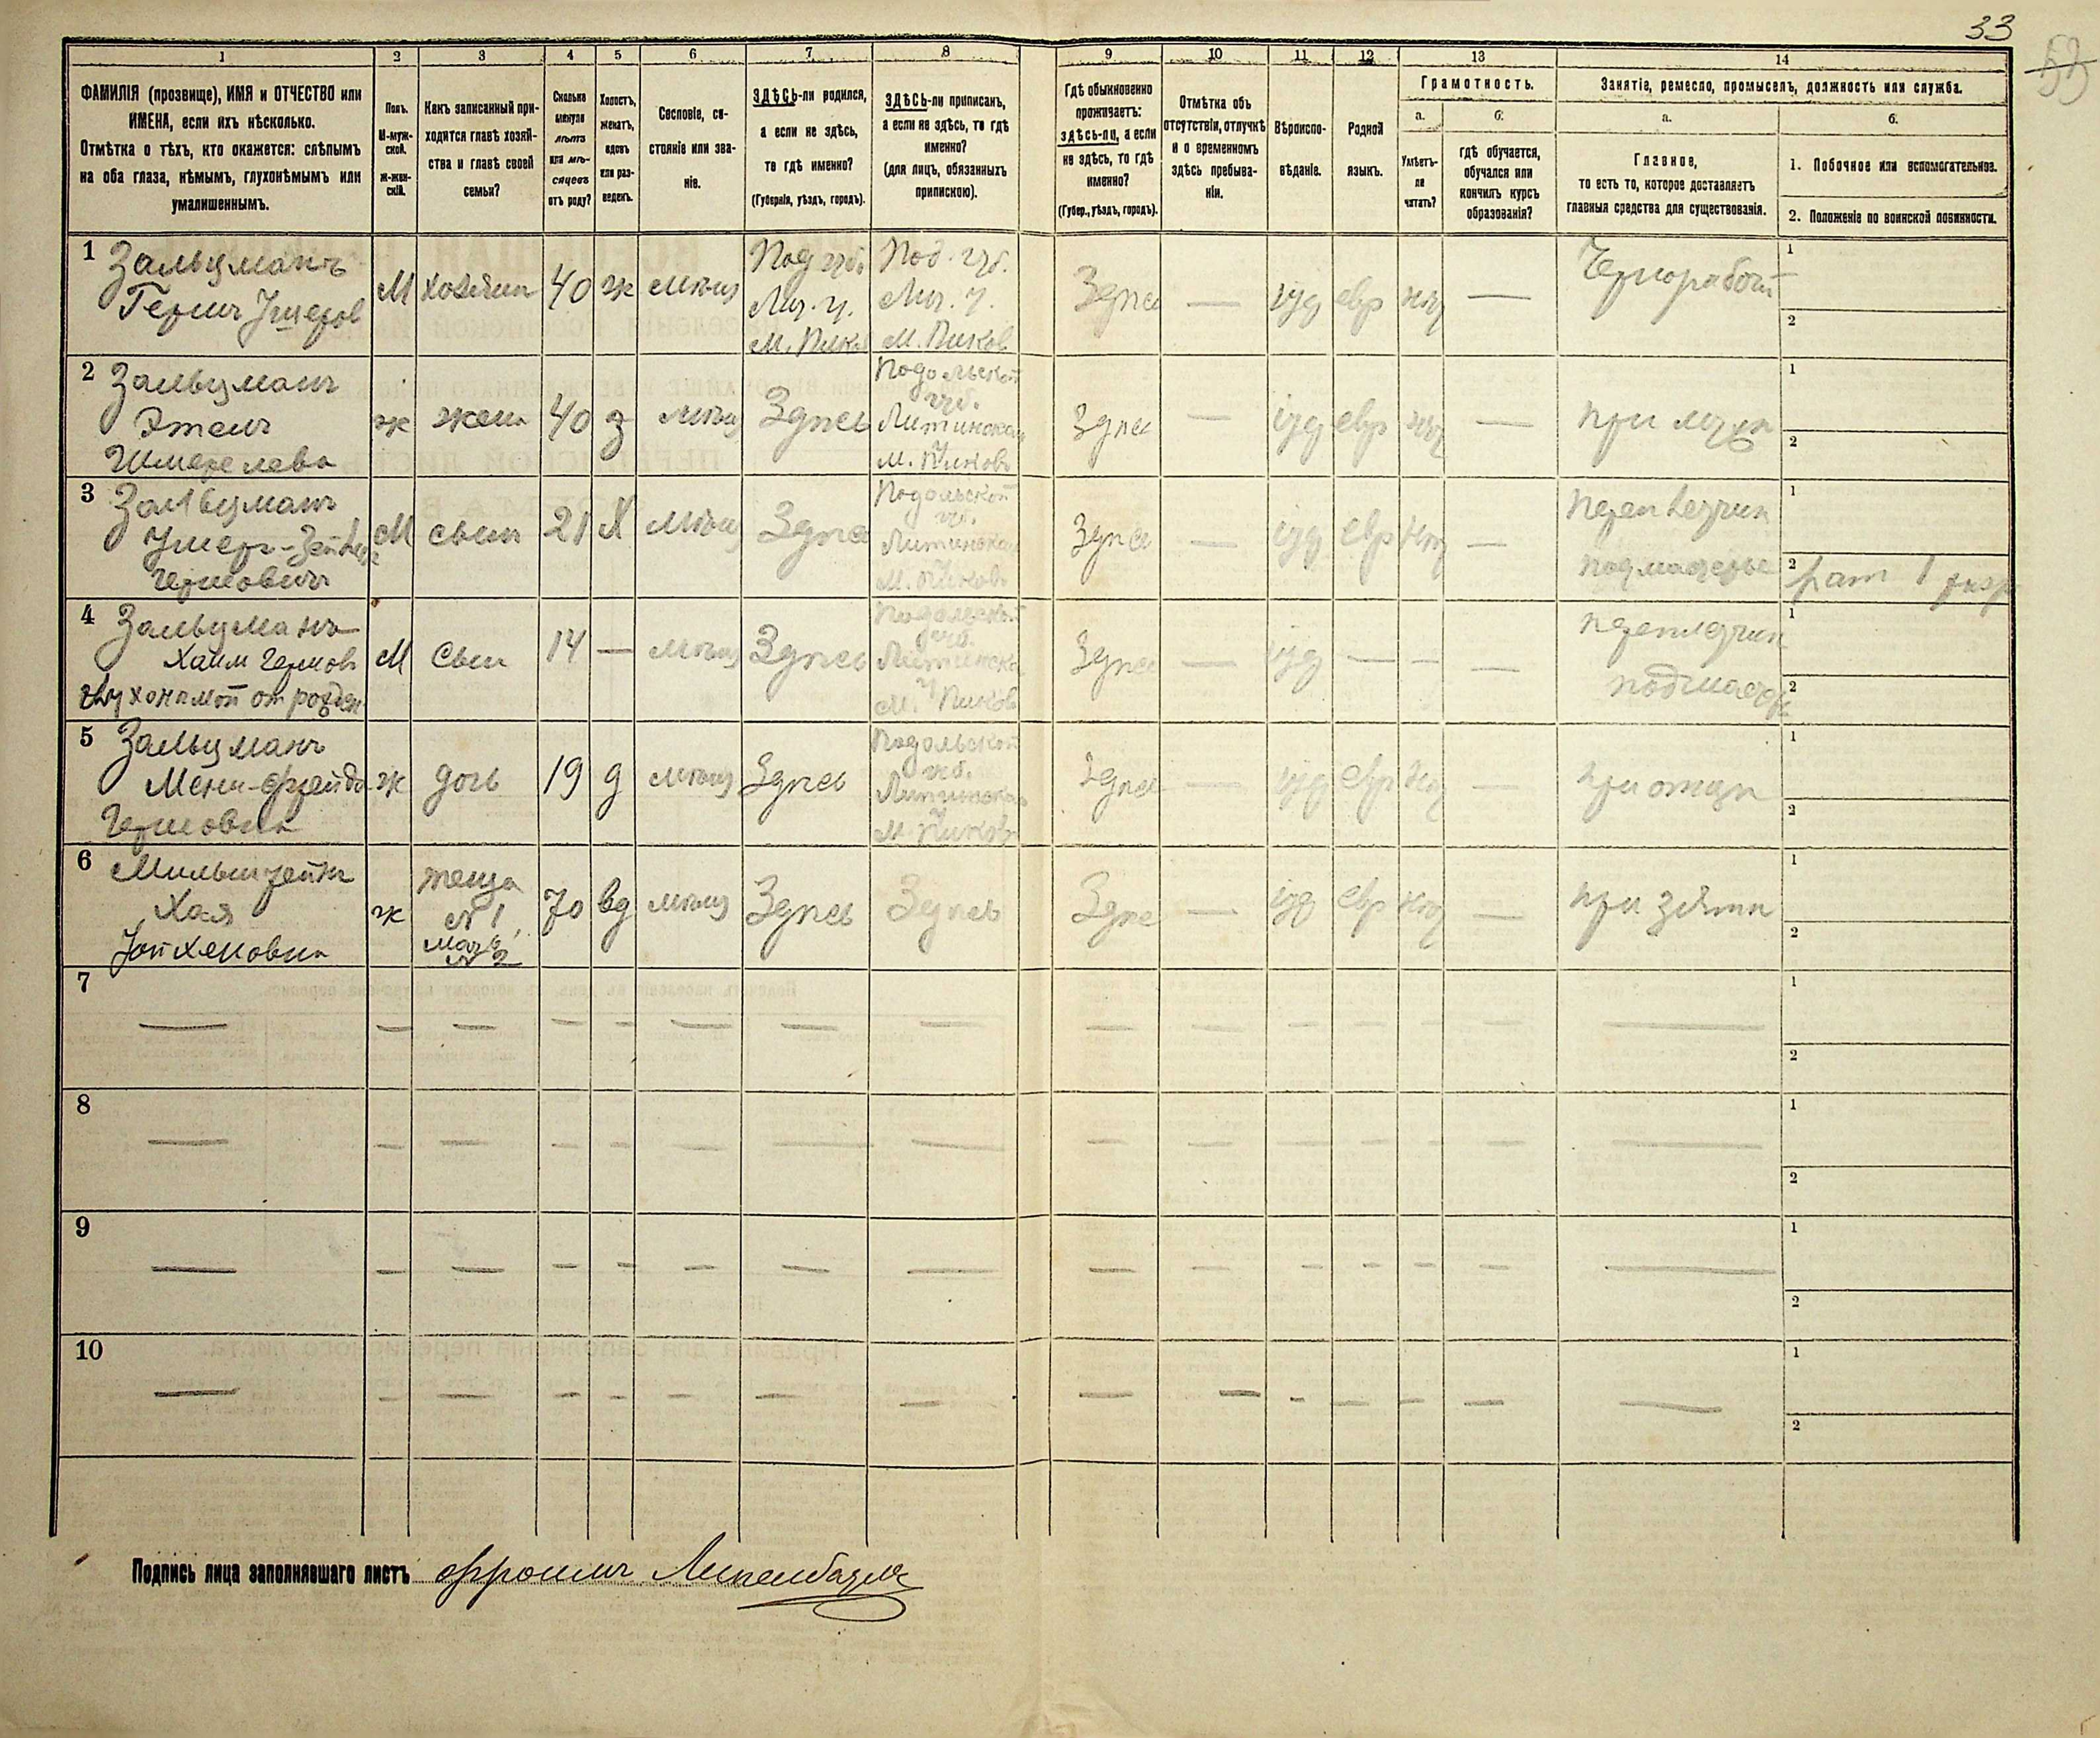 33
53
1
2
3
4
5
6
7
8
9
10
11
12
13
14
ФАМИЛІЯ (прозвище), ИМЯ и ОТЧЕСТВО или
ИМЕНА, если ихъ нѣсколько.
Отмѣтка о тѣхъ, кто окажется: слѣпымъ
на оба глаза, нѣмымъ, глухонѣмымъ или
умалишеннымъ.
Полъ.
М-муж-
ской.
Ж-жен-
скій.
Какъ записанный при-
ходится главѣ хозяй-
ства и главѣ своей
семьи?
Сколько
минуло
лѣтъ
или мѣ-
сяцевъ
отъ роду?
Холостъ,
женатъ,
вдовъ
или раз-
веденъ.
Сословіе, со-
стояніе или зва-
ніе.
ЗДѢСЬ-ли родился,
а если не здѣсь,
то гдѣ именно?
(Губернія, уѣздъ, городъ).
ЗДѢСЬ-ли приписанъ,
а если не здѣсь, то гдѣ
именно?
(для лицъ, обязанныхъ
припискою).
Гдѣ обыкновенно
проживаетъ:
здѣсь-ли, а если
не здѣсь, то гдѣ
именно?
(Губер., уѣздъ, городъ).
Отмѣтка объ
отсутствіи, отлучкѣ
и о временномъ
здѣсь пребыва-
ніи.
Вѣроиспо-
вѣданіе.
Родной
языкъ.
Грамотность.
а.
Умѣетъ-
ли
читать?
б.
гдѣ обучается,
обучался или
кончилъ курсъ
образованія?
Занятіе, ремесло, промыселъ, должность или служба.
а.
Главное,
то есть то, которое доставляетъ
главныя средства для существованія.
б.
1. Побочное или вспомогательное.
2. Положеніе по воинской повинности.
1 Зальцманъ
Гершъ Ушеров
М
хозяин
40
ж
мѣщ
Под губ.
Лит. у.
м. Пиков
Под. губ.
Лит. у.
м. Пиков
Здѣсь
—
іуд
евр
нѣт
—
Чернорабоч
1
2
2 Зальцманъ
Этель
Шмерелева
ж
жена
40
з
мѣщ
Здѣсь
Подольской
губ.
Литинскаго
у
м. Пиковъ
Здѣсь
—
іуд
евр
нѣт
—
при мужѣ
1
2
3 Зальцманъ
Ушер-Зейвел
Гершовичъ
М
сынъ
21
Х
мѣщ
Здѣсь
Подольской
губ.
Литинскаго
у
м. Пиковъ
Здѣсь
—
іуд
евр
нѣт
—
переплетчик
подмастерье
1
2 рат 1 разр
4 Зальцманъ
Хаим Гершов
глухонѣмой от рожден
М
Сын
14
—
мѣщ
Здѣсь
Подольской
губ.
Литинска
у
м. Пиков
Здѣсь
—
іуд
—
—
—
переплетчик
подмастер
1
2
5 Зальцманъ
Мени-Фрейда
Гершовна
ж
дочь
19
д
мѣщ
Здѣсь
Подольской
губ.
Литинскаго
у
м. Пиковъ
Здѣсь
—
іуд
евр
нѣт
—
при отцѣ
1
2
6 Мильштейн
Хая
Уойхеновна
ж
теща
№ 1,
мать
№ 2
70
вд
мѣщ
Здѣсь
Здѣсь
Здѣсь
—
іуд
евр
нѣт
—
при зятѣ
1
2
7
1
2
8
1
2
9
1
2
10
1
2
Подпись лица заполнявшаго листъ